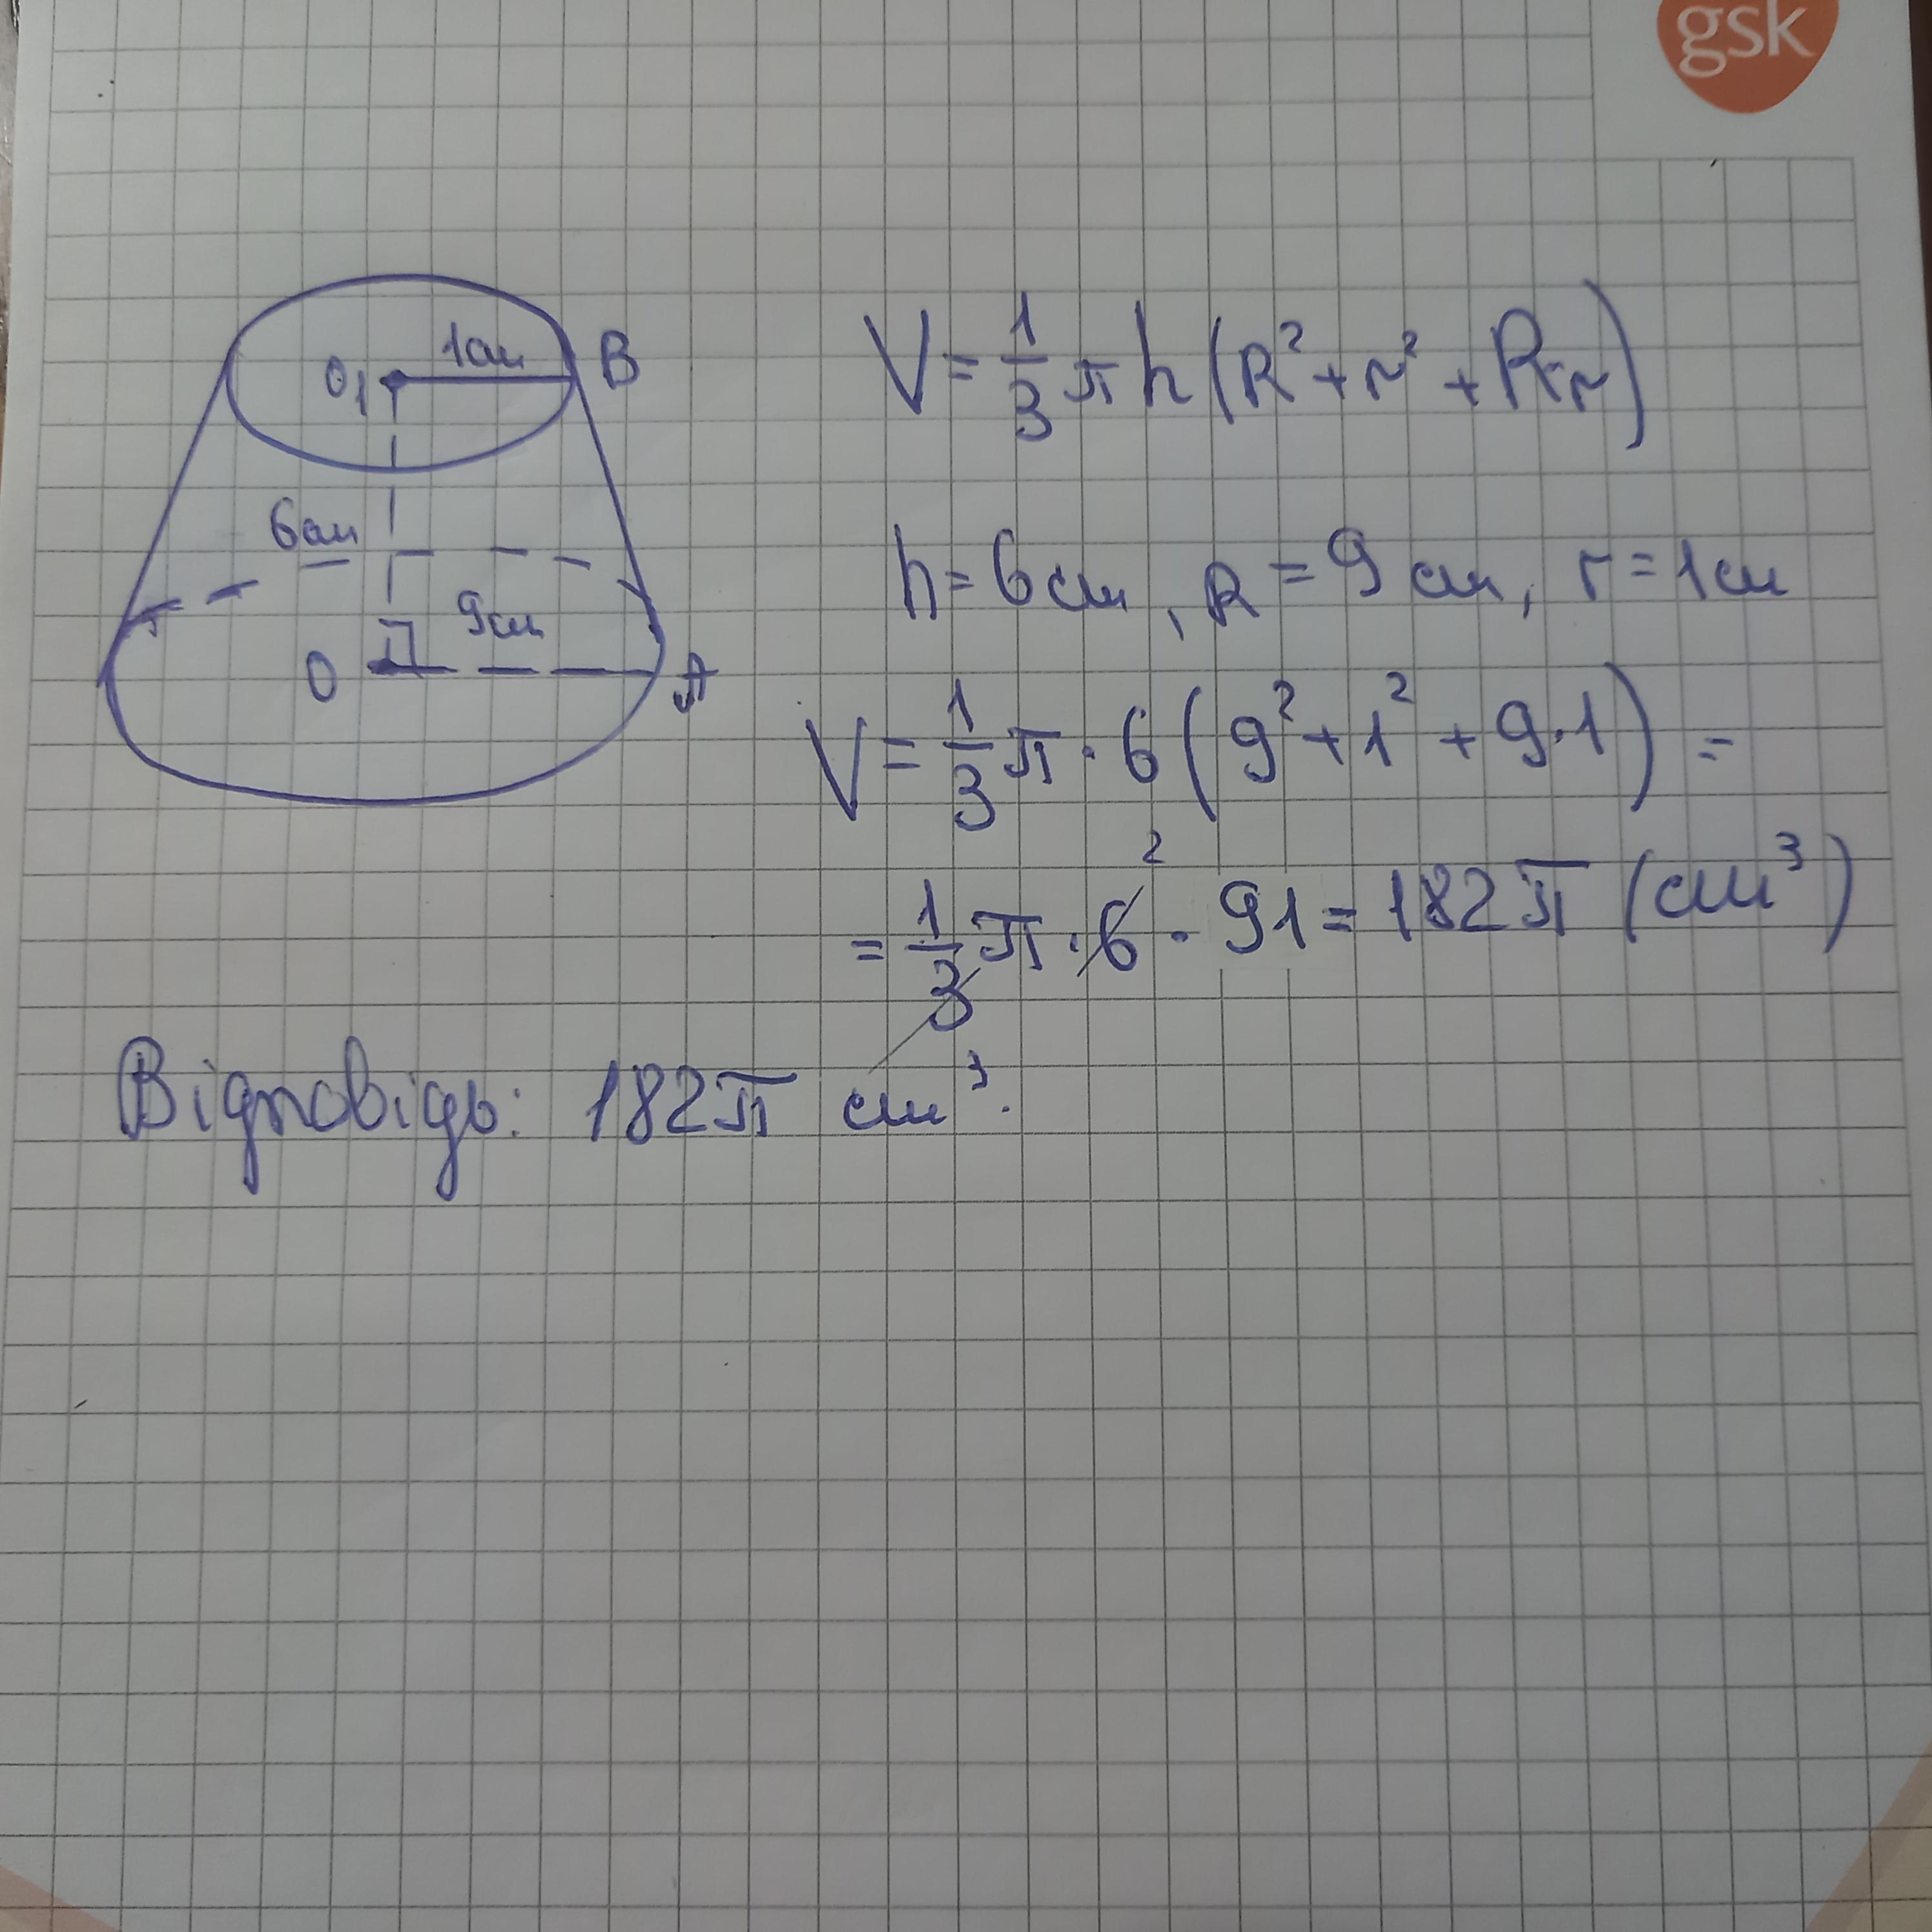 gsk
O₁ 1см B
6см
9см
O A
V = 1/3 π h (R² + r² + R·r)
h = 6 см, R = 9 см, r = 1 см
V = 1/3 π · 6 (9² + 1² + 9·1) =
= 1/3 π · 6 2 · 91 = 182π (см³)
Відповідь: 182π см³.